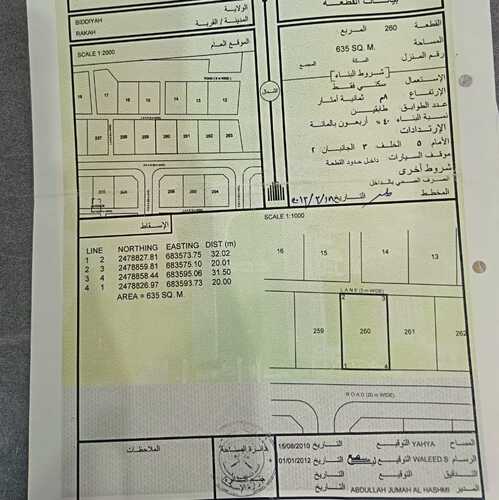 بيانات القطعة
الولاية
BIDDIYAH
المدينة / القرية
RAKAH
الموقع العام
SCALE 1:2000
القطعة 260 المربع
المساحة 635 SQ. M.
رقم المنزل السكة المجمع
شروط البناء
الاستعمال سكني فقط
الارتفاع ٨م ثمانية أمتار
عدد الطوابق طابقين
نسبة البناء ٤٠٪ أربعون بالمائة
الإرتدادات
الأمام ٥ الخلف ٣ الجانبان ٢
موقف السيارات داخل حدود القطعة
شروط أخرى
الصرف الصحي بالداخل
المخطط التاريخ
الشمال
16 14 13 12
257 261 262 263
204
الإسقاط
SCALE 1:1000
LINE NORTHING EASTING DIST (m)
1 2 2478827.81 683573.75 32.02
2 3 2478859.81 683575.10 20.01
3 4 2478858.44 683595.06 31.50
4 1 2478826.97 683593.73 20.00
AREA = 635 SQ. M.
16 15 14 13
LANE (5 m WIDE)
2 3
259 260 261 262
1 4
ROAD (20 m WIDE)
الملاحظات
دائرة المساحة
المساح YAHYA التوقيع التاريخ 15/08/2010
الرسام WALEED.S التوقيع التاريخ 01/01/2012
التدقيق التوقيع التاريخ
المدير ABDULLAH JUMAH AL HASHMI